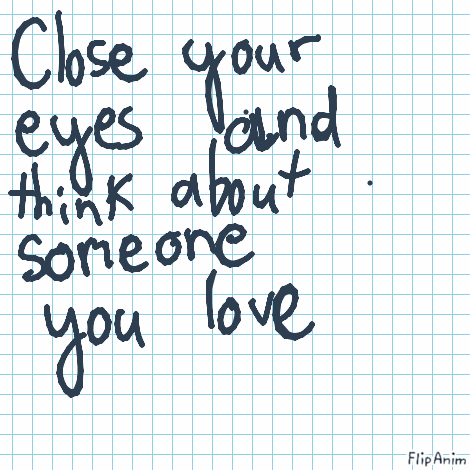 Close your
eyes and
think about
someone
you love
FlipAnim